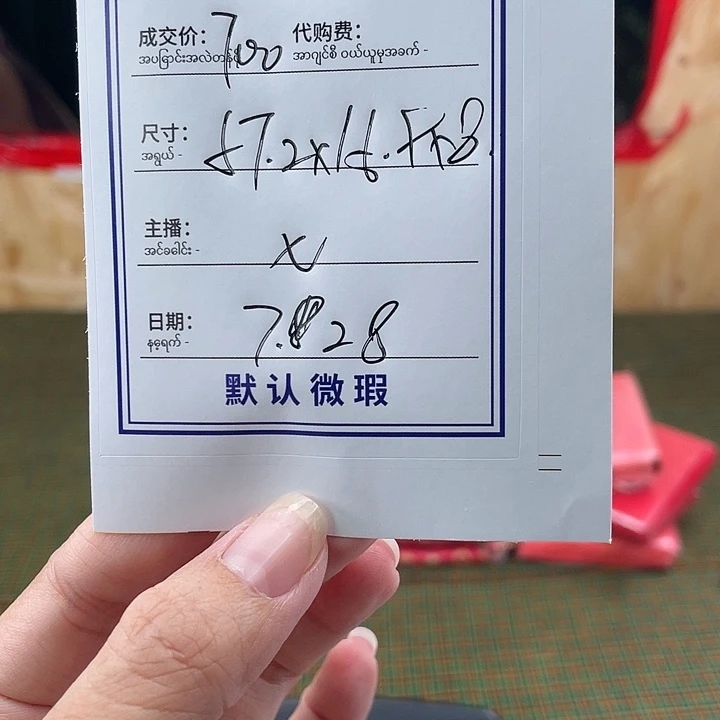 成交价: 700 代购费:
အပြောင်းအလဲတန်ဖိုး အာဂျင်စီ ဝယ်ယူမှုအခက် -
尺寸: 57.2x16.5x8.
အရွယ် -
主播: x
အင်ခေါင်း -
日期: 7. 28
နေ့ရက် -
默认微瑕